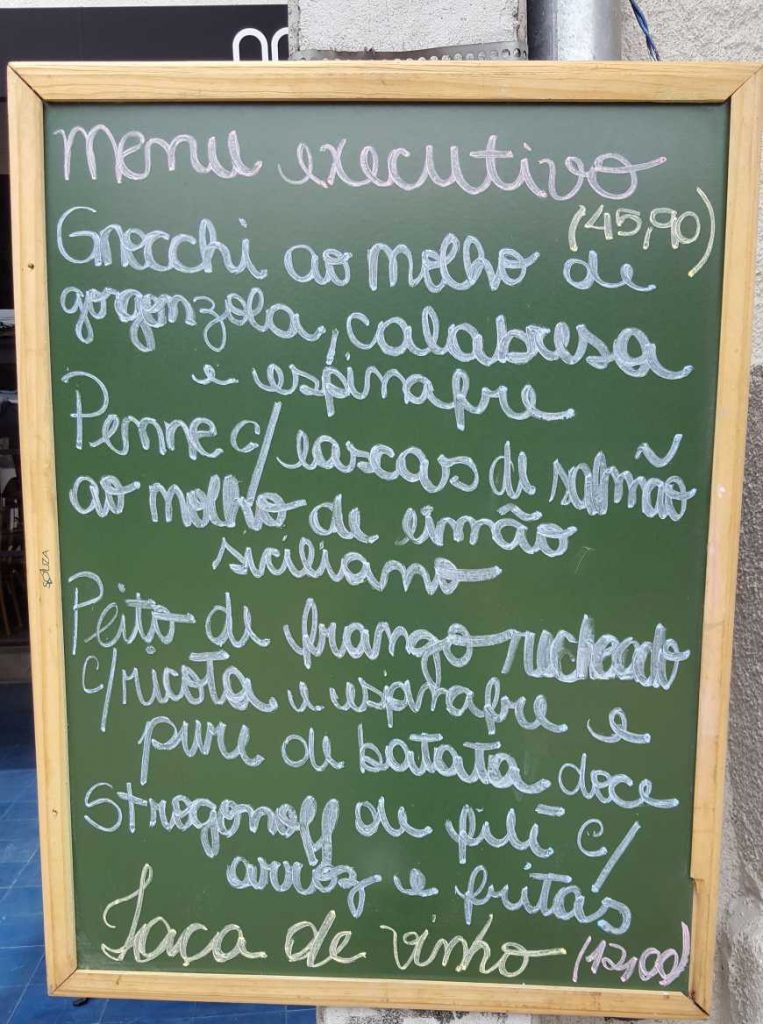 Menu executivo
(45,90)
Gnocchi ao molho de
gorgonzola, calabresa
e espinafre
Penne c/ lascas de salmão
ao molho de limão
siciliano
Peito de frango recheado
c/ ricota e espinafre e
pure de batata doce
Strogonoff de filé c/
arroz e fritas
Taça de vinho (12,00)
souza